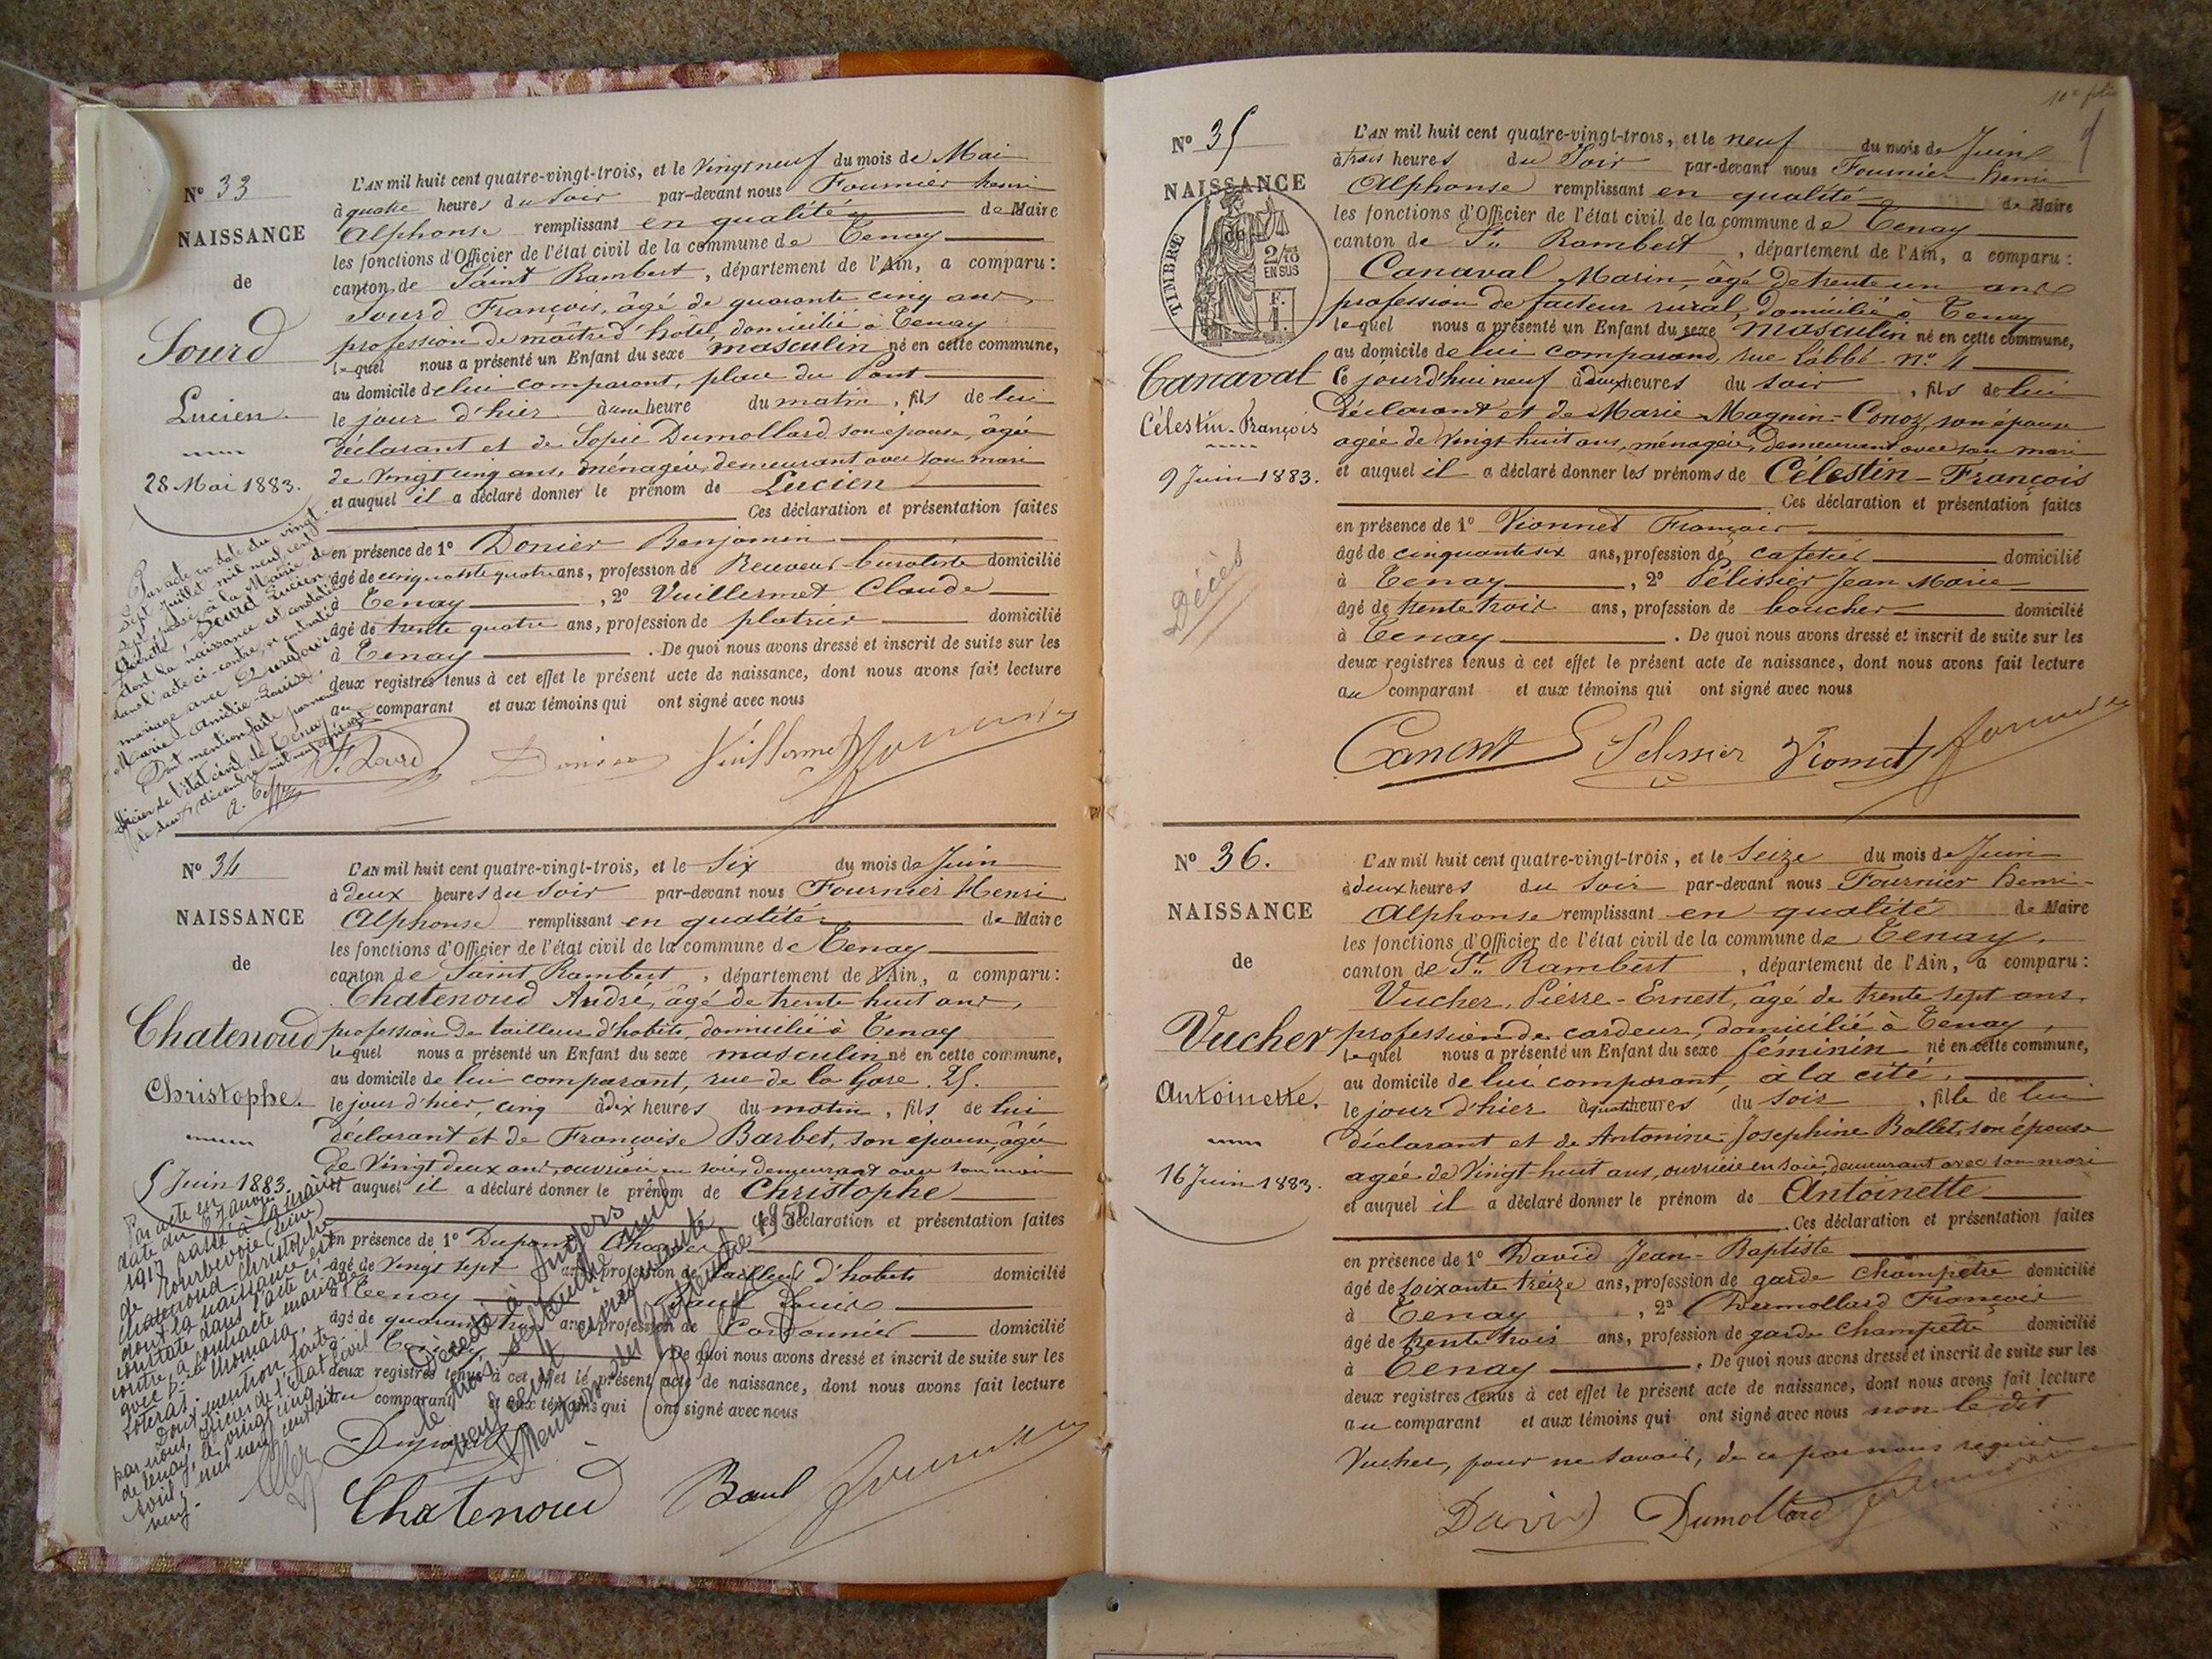 N° 33
NAISSANCE
de
Sourd
Lucien
28 Mai 1883.
L'AN mil huit cent quatre-vingt-trois, et le Vingt neuf du mois de Mai
à quatre heures du soir par-devant nous Fournier henri
Alphonse remplissant en qualité de Maire
les fonctions d'Officier de l'état civil de la commune de Tenay
canton de Saint Rambert, département de l'Ain, a comparu :
Sourd François, âgé de quarante cinq ans,
profession de maître d'hôtel, domicilié à Tenay
lequel nous a présenté un Enfant du sexe masculin né en cette commune,
au domicile de lui comparant, place du Pont
le jour d'hier à une heure du matin, fils de lui
déclarant et de Sopie Dumollard son épouse, âgée
de Vingt cinq ans, ménagère, demeurant avec son mari
et auquel il a déclaré donner le prénom de Lucien
Ces déclaration et présentation faites
en présence de 1° Donier Benjamin
âgé de cinquante quatre ans, profession de Receveur buraliste domicilié
à Tenay, 2° Vuillermet Claude
âgé de trente quatre ans, profession de platrier domicilié
à Tenay. De quoi nous avons dressé et inscrit de suite sur les
deux registres tenus à cet effet le présent acte de naissance, dont nous avons fait lecture
au comparant et aux témoins qui ont signé avec nous
Par acte en date du vingt
sept Juillet mil neuf cent
sept, passé à la Mairie de
Sourd Lucien
dont la naissance est constatée
dans l'acte ci-contre, a contracté
mariage avec
Marie Amélie-Louise.
Dont mention faite par nous
officier de l'état civil de Tenay
F. Sourd Donier Vuillermet Fournier
N° 34
NAISSANCE
de
Chatenoud
Christophe.
5 Juin 1883.
L'AN mil huit cent quatre-vingt-trois, et le six du mois de Juin
à deux heures du soir par-devant nous Fournier Henri
Alphonse remplissant en qualité de Maire
les fonctions d'Officier de l'état civil de la commune de Tenay
canton de Saint Rambert, département de l'Ain, a comparu :
Chatenoud André, âgé de trente huit ans,
profession de tailleur d'habits, domicilié à Tenay
lequel nous a présenté un Enfant du sexe masculin né en cette commune,
au domicile de lui comparant, rue de la Gare. 25.
le jour d'hier, cinq à dix heures du matin, fils de lui
déclarant et de Françoise Barbet, son épouse, âgée
de Vingt deux ans, ouvrière en soie, demeurant avec son mari
et auquel il a déclaré donner le prénom de Christophe
Ces déclaration et présentation faites
en présence de 1° Dupont
âgé de Vingt sept ans, profession de tailleur d'habits domicilié
à Tenay Baul Louis
âgé de quarante trois ans, profession de Cordonnier domicilié
à Tenay. De quoi nous avons dressé et inscrit de suite sur les
deux registres tenus à cet effet le présent acte de naissance, dont nous avons fait lecture
au comparant et aux témoins qui ont signé avec nous
Par acte en
date du 27 Janvier
1917 passé à la mairie
de Courbevoie (Seine)
Chatenoud Christophe
dont la naissance est
constatée dans l'acte ci-
contre, a contracté mariage
avec Thomasa
Soteras.
Dont mention faite
par nous, officier de l'état civil
de Tenay, le vingt cinq
avril mil neuf cent dix
neuf.
Décédé à Angers
le trois septembre mil
neuf cent cinquante
Mention du septembre 1950
Dupont
Chatenoud Baul Fournier
10e folio
N° 35
NAISSANCE
de
TIMBRE
2/10
EN SUS
F.
1
Canaval
Célestin-François
9 Juin 1883.
Décès
L'AN mil huit cent quatre-vingt-trois, et le neuf du mois de Juin
à trois heures du Soir par-devant nous Fournier henri
Alphonse remplissant en qualité de Maire
les fonctions d'Officier de l'état civil de la commune de Tenay
canton de St. Rambert, département de l'Ain, a comparu :
Canaval Marin, âgé de trente un ans
profession de facteur rural, domicilié à Tenay
lequel nous a présenté un Enfant du sexe masculin né en cette commune,
au domicile de lui comparant, rue Labbé N° 4
Ce jourd'hui neuf à deux heures du soir, fils de lui
déclarant et de Marie Magnin-Conoz, son épouse
agée de Vingt huit ans, ménagère, demeurant avec son mari
et auquel il a déclaré donner les prénoms de Célestin-François
Ces déclaration et présentation faites
en présence de 1° Vionnet François
âgé de cinquante six ans, profession de cafetier domicilié
à Tenay, 2° Pélissier Jean Marie
âgé de trente trois ans, profession de boucher domicilié
à Tenay. De quoi nous avons dressé et inscrit de suite sur les
deux registres tenus à cet effet le présent acte de naissance, dont nous avons fait lecture
au comparant et aux témoins qui ont signé avec nous
Canaval Pelissier Vionnet Fournier
N° 36.
NAISSANCE
de
Vucher
Antoinette.
16 Juin 1883.
L'AN mil huit cent quatre-vingt-trois, et le Seize du mois de Juin
à deux heures du Soir par-devant nous Fournier henri-
Alphonse remplissant en qualité de Maire
les fonctions d'Officier de l'état civil de la commune de Tenay,
canton de St. Rambert, département de l'Ain, a comparu :
Vucher, Pierre-Ernest, âgé de trente sept ans,
profession de cardeur, domicilié à Tenay,
lequel nous a présenté un Enfant du sexe féminin né en cette commune,
au domicile de lui comparant, à la cité,
le jour d'hier à quatre heures du soir, fille de lui
déclarant et de Antonine-Josephine Ballet, son épouse
agée de Vingt-huit ans, ouvrière en soie, demeurant avec son mari
et auquel il a déclaré donner le prénom de Antoinette
Ces déclaration et présentation faites
en présence de 1° David Jean-Baptiste
âgé de soixante treize ans, profession de garde champêtre domicilié
à Tenay, 2° Dumollard François
âgé de trente trois ans, profession de garde champêtre domicilié
à Tenay. De quoi nous avons dressé et inscrit de suite sur les
deux registres tenus à cet effet le présent acte de naissance, dont nous avons fait lecture
au comparant et aux témoins qui ont signé avec nous non le dit
Vucher, pour ne savoir, de ce par nous requis
David Dumollard Fournier